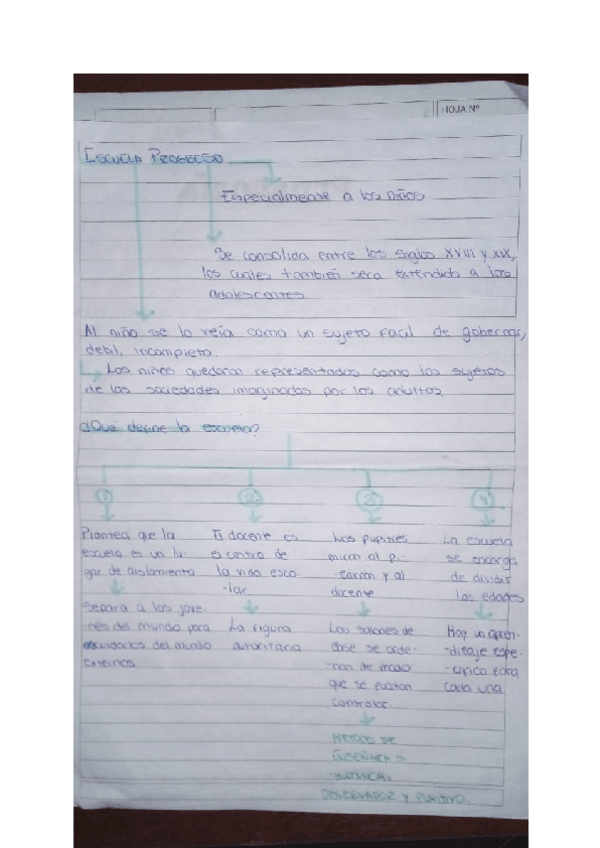 HOJA Nº
ESCUELA PROGRESO
Especialmense a los niños
Se consolida entre los siglos XVIII y XIX,
los cuales también sera extendida a los
adolescentes
Al niño se lo veía como un sujeto facil de gobernar,
debil, incompleto.
Los niños quedaron representados como los sujetos
de las sociedades imaginadas por los adultos.
¿Qué define la escuela?
1
Plantea que la
escuela es un lu-
gar de aislamiento
Separa a los jove-
nes del mundo para
del mundo
externos
2
El docente es
el centro de
la vida esco-
-lar
La figura
autoritaria
3
Los pupitres
miran al pi-
-zarron y al
docente
Los salones de
clase se orde-
-nan de modo
que se puedan
controlar
METODO DE
ENSEÑANZA
OBSERVADOR Y PUNITIVO
4
La escuela
se encarga
de dividir
las edades
Hay un apren-
-dizaje espe-
-cifico
cada una